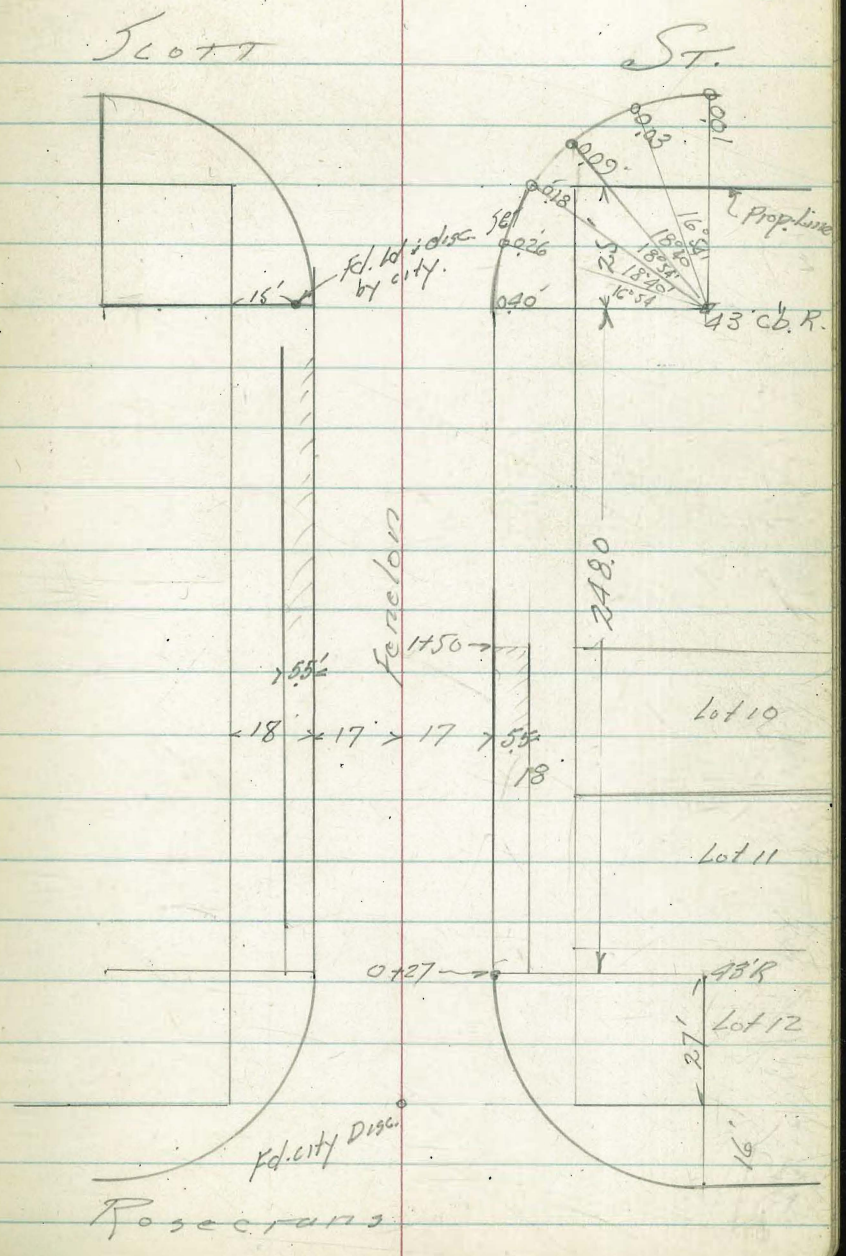 Scott St.
0.01
0.03
0.09
0.18
Set
0.26
0.40
Prop. Line
16°54'
18°40'
18°54'
18°40'
16°54'
25
43' cb. R.
15'
Fd. Ld & disc.
by city.
Fenelon
248.0
1+50
5.5'
18 17 17 5.5
18
Lot 10
Lot 11
0+27
43'R
Lot 12
27'
16'
Fd. city Disc.
Rosecrans